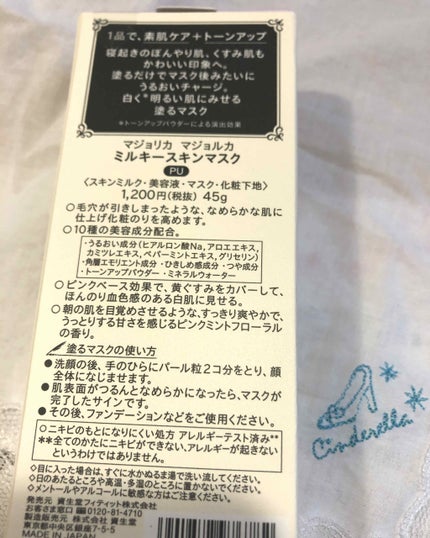 1品で、素肌ケア+トーンアップ
寝起きのぼんやり肌、くすみ肌も
かわいい印象へ。
塗るだけでマスク後みたいに
うるおいチャージ。
白く*明るい肌にみせる
塗るマスク
*トーンアップパウダーによる演出効果
マジョリカ マジョルカ
ミルキースキンマスク
PU
〈スキンミルク・美容液・マスク・化粧下地〉
1,200円(税抜) 45g
○毛穴が引きしまったような、なめらかな肌に
仕上げ化粧のりを高めます。
○10種の美容成分配合。
・うるおい成分(ヒアルロン酸Na,アロエエキス,
カミツレエキス,ペパーミントエキス,グリセリン)
・角層エモリエント成分・ひきしめ感成分・つや成分
・トーンアップパウダー・ミネラルウォーター
○ピンクベース効果で、黄ぐすみをカバーして、
ほんのり血色感のある白肌に見せる。
○朝の肌を目覚めさせるような、すっきり爽やかで、
うっとりする甘さを感じるピンクミントフローラル
の香り。
塗るマスクの使い方
●洗顔の後、手のひらにパール粒2コ分をとり、顔
全体になじませます。
●肌表面がつるんとなめらかになったら、マスクが
完了したサインです。
●その後、ファンデーションなどをご使用ください。
○ニキビのもとになりにくい処方 アレルギーテスト済み**
**全てのかたにニキビができない、アレルギーが起きない
というわけではありません。
◇目に入った場合は、すぐに水かぬるま湯で洗い流してください。
◇日のあたるところや高温・多湿のところに置かないでください。
◇メントールやアルコールに敏感な方はご注意ください。
発売元 資生堂フィティット株式会社
お客さま窓口 0120-81-4710
製造販売元 株式会社 資生堂
東京都中央区銀座7-5-5
MADE IN JAPAN
Cinderella